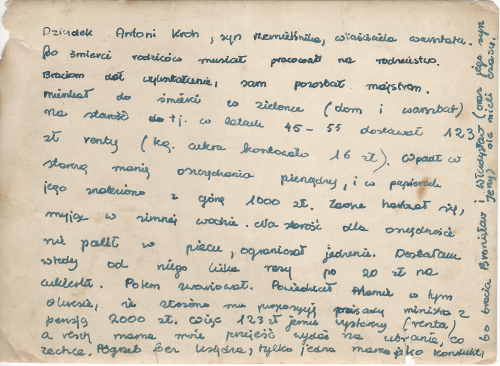 Dziadek Antoni Kroh, syn rzemieślnika, właściciela warsztatu.
Po śmierci rodziców musiał pracować na rodzeństwo.
Braciom dał wykształcenie, sam pozostał majstrem.
Mieszkał do śmierci w Zielonce (dom i warsztat)
na starość do tj. w latach 45-55 dostawał 123
zł renty (kg. cukru kosztowało 16 zł). Wpadł w
starczą manię oszczędzania pieniędzy, i w papierach
jego znaleziono z górą 1000 zł. Zawsze hartował się,
myjąc w zimnej wodzie. Na starość dla oszczędności
nie palił w piecu, ograniczał jedzenie. Dostałam
wtedy od niego kilka razy po 20 zł na
cukierki. Potem zwariował. Powiedział Mamie w tym
okresie, że złożono mu propozycję posady ministra z
pensją 2000 zł. Więc 123 zł jemu wystarczy (renta)
a resztę mama może przejść wydać na ubrania, co
zechce. Pogrzeb bez księdza, tylko jedna mama jako kondukt,
bo bracia Bronisław i Władysław (oraz jego syn
Jerzy) nie mieli czasu.